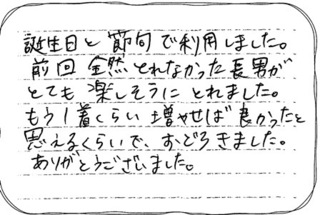 誕生日と節句で利用しました。
前回全然とれなかった長男が
とても楽しそうにとれました。
もう1着くらい増やせば良かったと
思えるくらいで、おどろきました。
ありがとうございました。